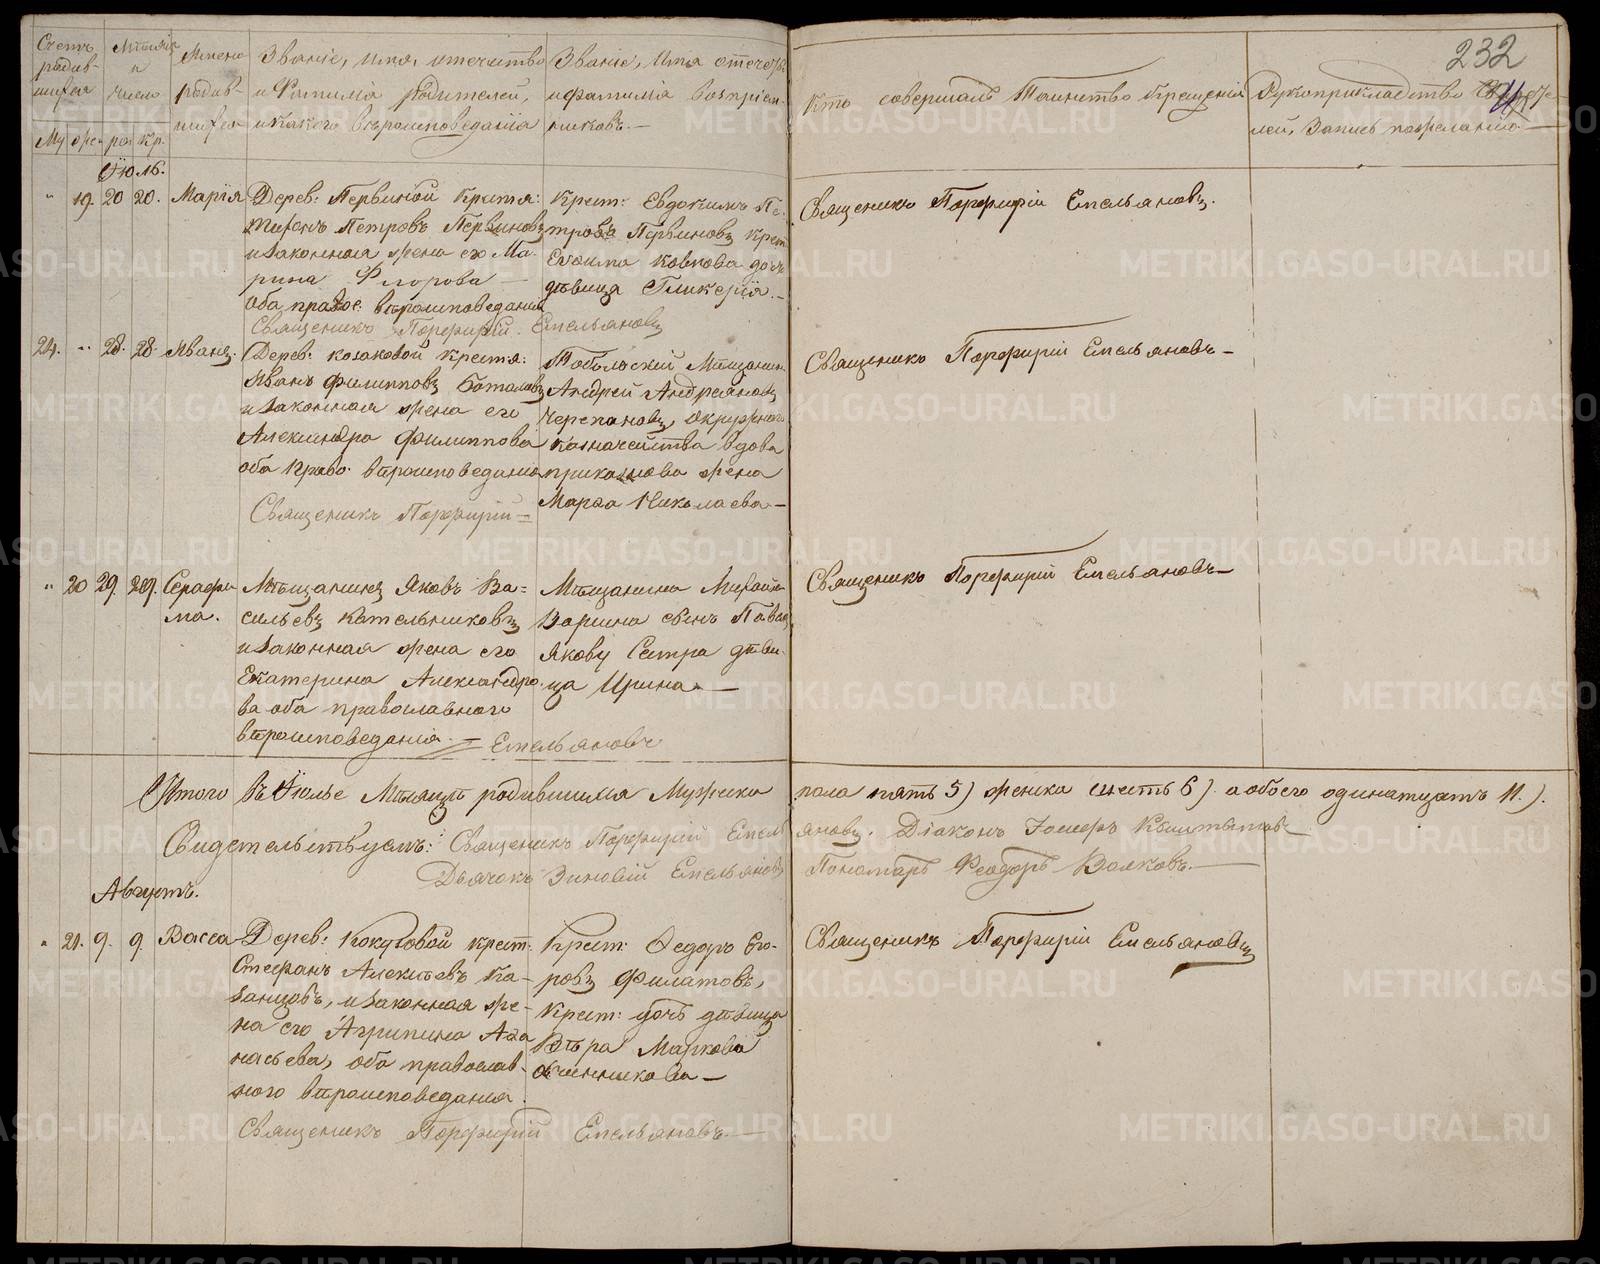 232
Счетъ родив- шихся
Мѣсяцъ и число
Имена родив- шихся
Званіе, имя, отечество
и Фамилія родителей,
и какого вѣроисповѣданія
Званіе, Имя отечес.
и фамилія воспріем-
никовъ.—
Кто совершалъ Таинство Крещенія
Рукоприкладство
лей, Запись по желанію
Му же- ро Кр.
Іюль.
" 19. 20 20. Марія
Дерев: Первиной Крестья:
Петровъ Первиновъ
и Законная жена его Ма-
рина Флорова —
оба правос: вѣроисповеданія
Священикъ Порфирій Емельяновъ
Крест: Евдокимъ Пе-
тровъ Первиновъ Крест
дочь
дѣвица Гликерія.—
Священикъ Порфирій Емельяновъ.
24. " 28. 28. Иванъ.
Дерев: козаковой Крестья:
Иванъ Филипповъ Боталовъ
и Законная жена его
Александра Филиппова
оба Право: вѣроисповеданія
Священикъ Порфирій =
Тобольскій Мещанинъ
Андрей Андреяновъ
Черепановъ, Окружнаго
Казначейства вдова
жена
Марѳа Николаева —
Священикъ Порфирій Емельяновъ—
" 20 29. 29. Серафи-
ма.
Мѣщанинъ Яковъ Ва=
сильевъ Котельниковъ
и Законная жена его
Екатерина Александро-
ва оба православнаго
вѣроисповеданія. —
Емельяновъ
Мѣщанина Михаила
сынъ Павелъ
Якову Сестра дѣви-
ца Ирина —
Священикъ Порфирій Емельяновъ—
Итого въ Іюлѣ Мѣсяцѣ родившихся Мужска пола пять 5) женска шесть 6) а обоего одинатцать 11.).
Свидетельствуемъ: Священикъ Порфирій Емельяновъ. Діаконъ Іосифъ
Дьячокъ Зиновій Емельяновъ Пономарь Феодоръ Волковъ.—
Августъ.
" 21. 9. 9. Васса
Дерев: Кокуговой крест-
Стефанъ Алексѣевъ Ка-
занцовъ, и Законная же-
на его Агрипина Аѳа
насьева, оба православ-
наго вѣроисповеданія.
Священикъ Порфирій Емельяновъ—
Крест: Ѳедоръ Его-
ровъ Филатовъ,
Крест: дочь дѣвица
Вѣра Маркова
Овчинникова —
Священикъ Порфирій Емельяновъ
METRIKI.GASO-URAL.RU